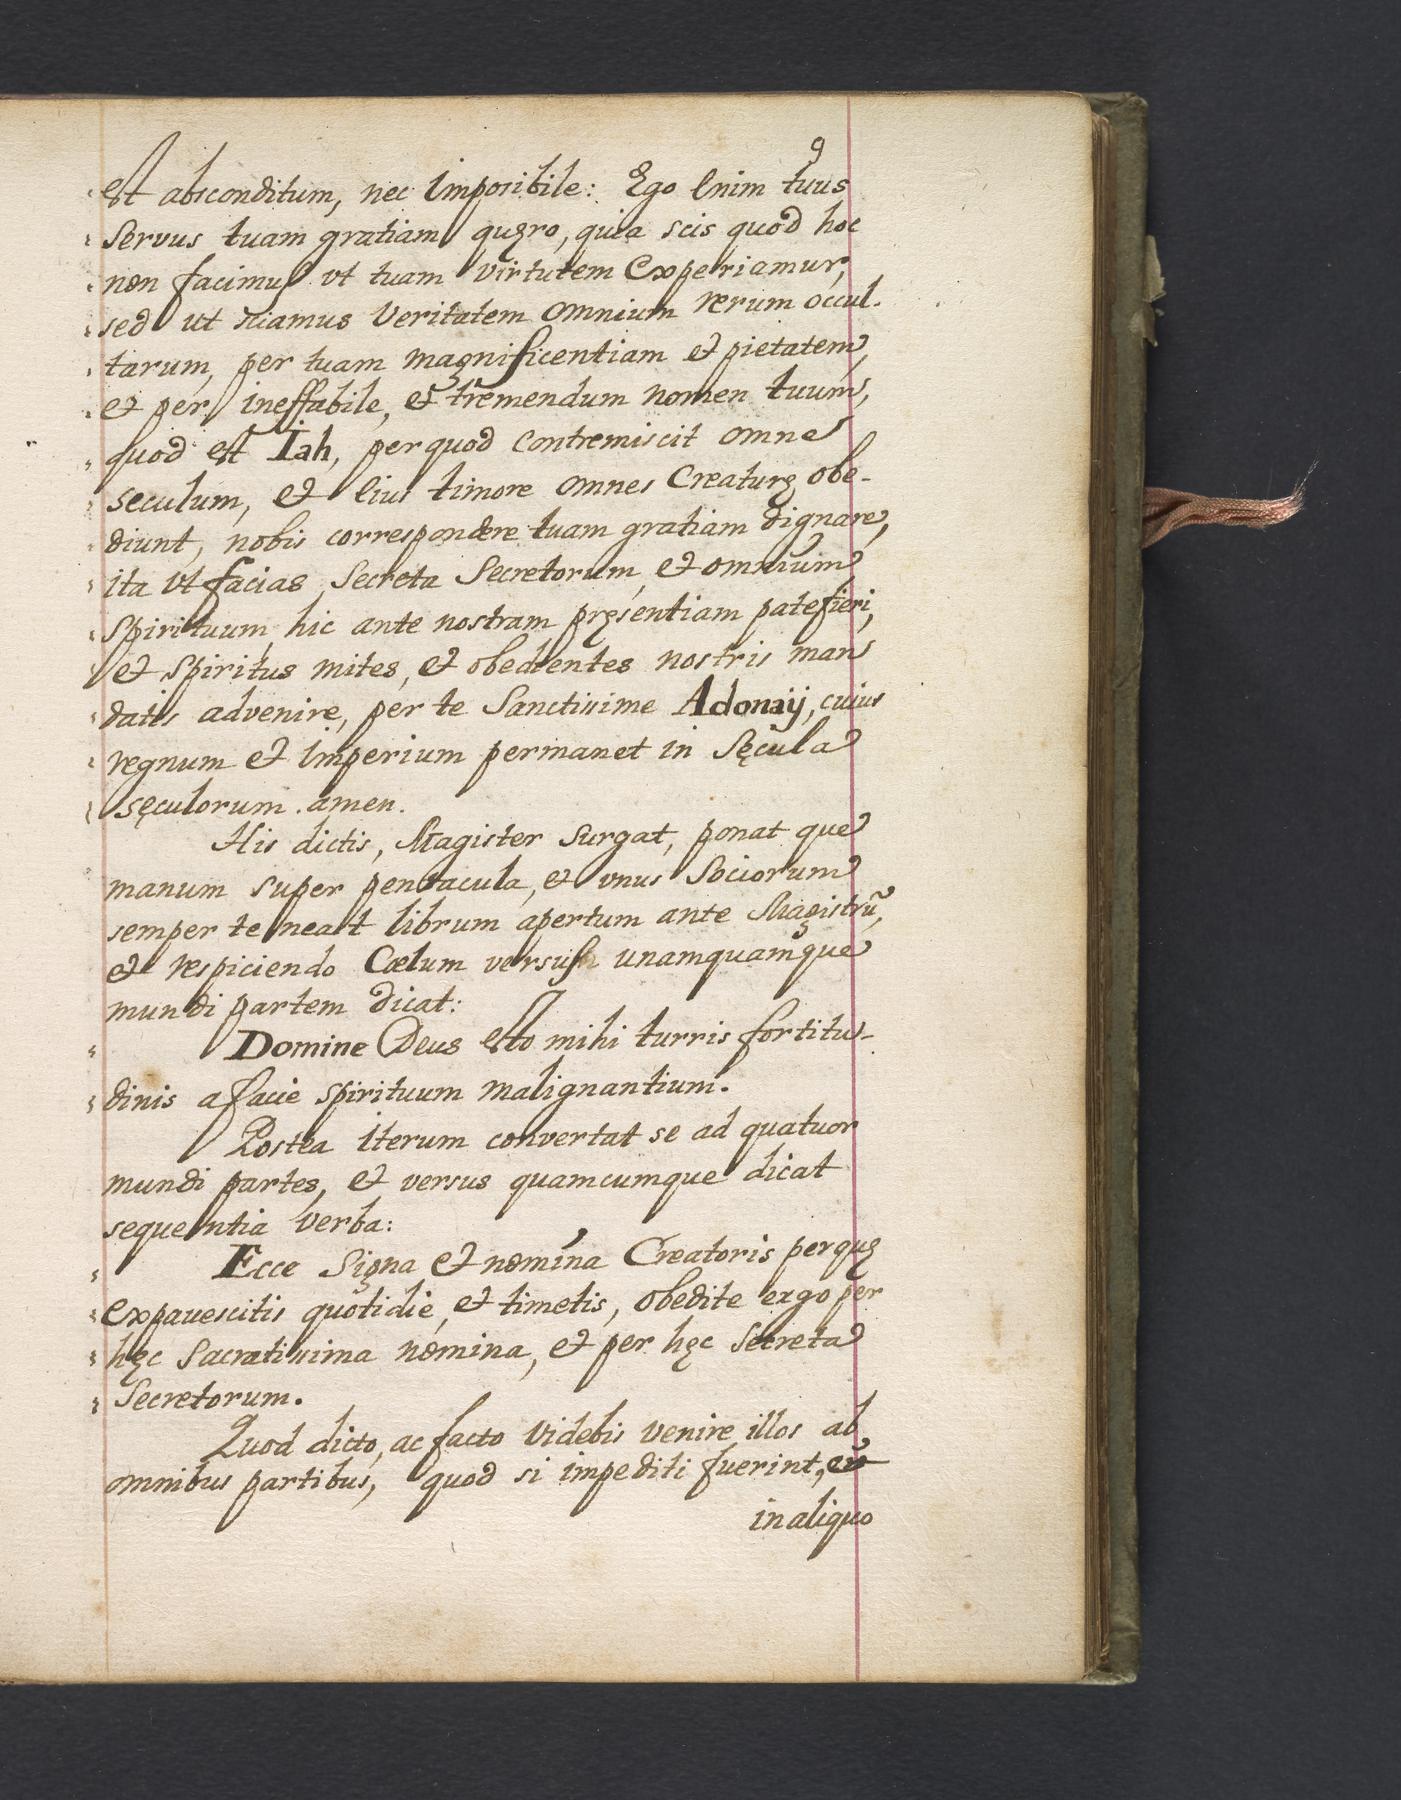 9
est absconditum, nec Imposibile: Ego Enim tuus
servus tuam gratiam quęro, quia scis quod hoc
non facimus vt tuam virtutem Experiamur,
sed ut sciamus Veritatem omnium rerum occul-
tarum, per tuam magnificentiam et pietatem,
et per ineffabile, et tremendum nomen tuum,
quod est Iah, per quod contremiscit omne
seculum, et Eius timore omnes Creaturę obe-
diunt, nobis correspondere tuam gratiam dignare,
ita vt facias Secreta Secretorum, et omnium
Spirituum hic ante nostram pręsentiam patefieri,
et spiritus mites, et obedientes nostris man
datis advenire, per te Sanctissime Adonaij, cuius
regnum et Imperium permanet in Sęcula
sęculorum. amen.
His dictis, Magister surgat, ponat que
manum super pentacula, et vnus Sociorum
semper teneat librum apertum ante Magistrũ,
et respiciendo Cœlum versus unamquamque
mundi partem dicat:
Domine Deus esto mihi turris fortitu-
dinis a facie spirituum malignantium.
Postea iterum convertat se ad quatuor
mundi partes, et versus quamcumque dicat
sequentia verba:
Ecce Signa et nomina Creatoris per quę
expavescitis quotidie, et timetis, obedite ergo per
hęc Sacratissima nomina, et per hęc Secreta
Secretorum.
Quod dicto, ac facto Videbis venire illos ab
omnibus partibus, quod si impediti fuerint,
in aliquo